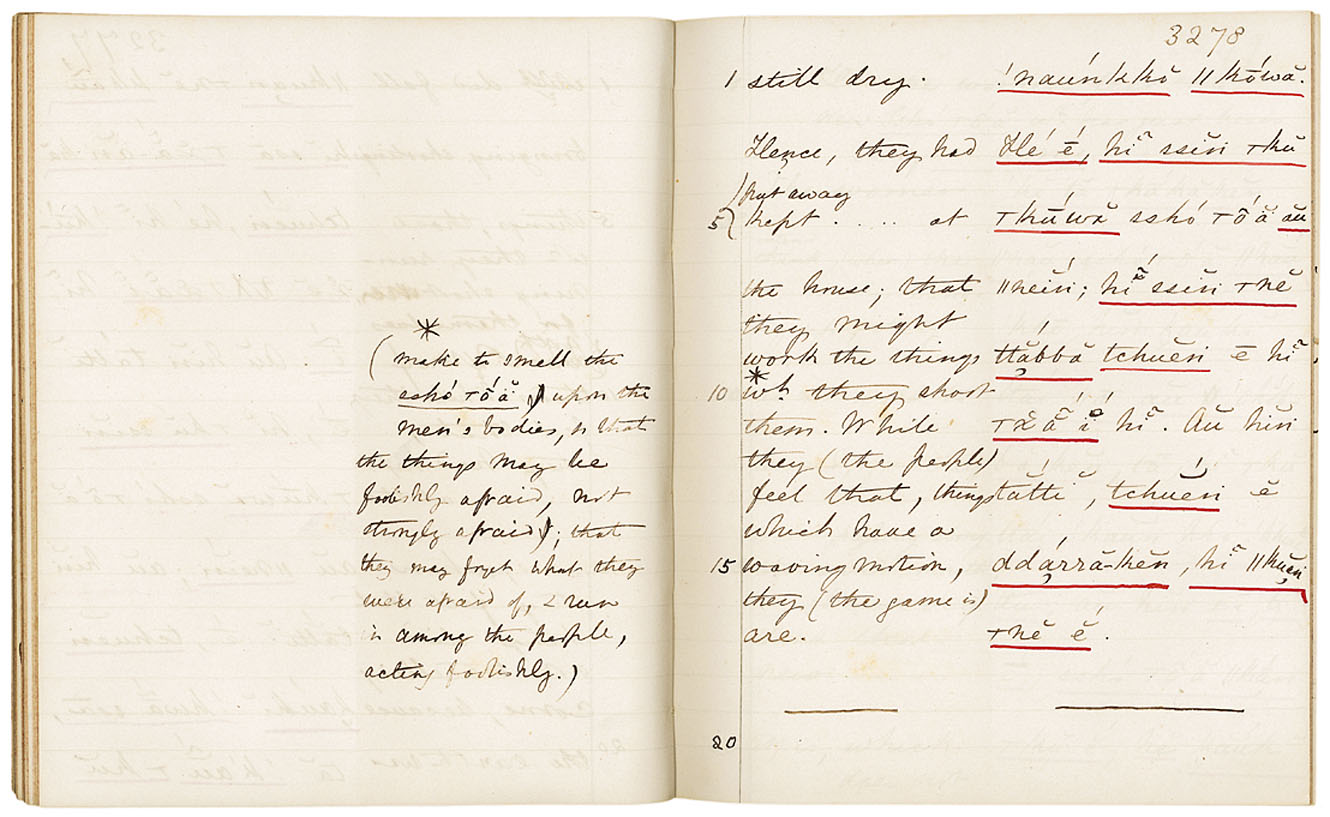 make to smell the
sshó τóä̆ upon the
men's bodies, so that
the things may be
foolishly afraid, not
strongly afraid; that
they may forget what they
were afraid of, & run
in among the people,
acting foolishly.)
3278
1 still dry. !naúnkkŏ ǁkówă.
Hence, they had Hé ē, hĭ ssĭn τkŭ
(put away
5 kept ..... at τkúwă sshó τóä̆ aŭ
the house; that ǁneĭn; hĭ ssĭn τnĕ
they might
work the things ttắbbă tchuĕn ē hĭ
*
10 wh. they shoot
them. While τxắ ĭ hĭ. Aŭ hĭn
they (the people)
feel that, things tắttĭ, tchuĕn ē
which have a
15 waving motion, ddárră-kĕn, hĭ ǁkuĕn
they (the game is)
are. τnĕ ĕ.
20